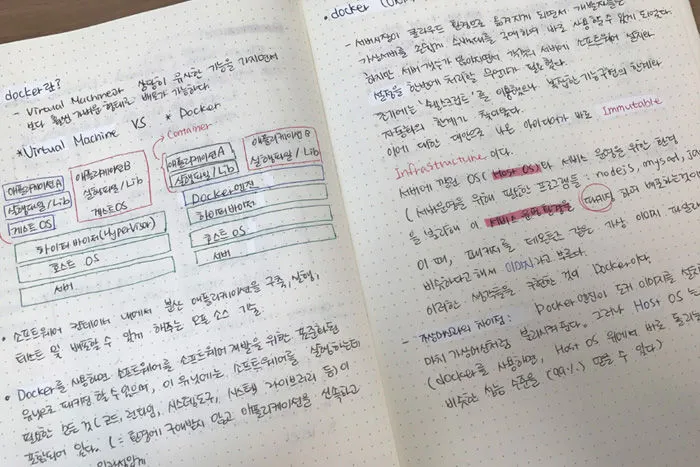 docker란?
- Virtual Machine과 상당히 유사한 기능을 가지면서
보다 훨씬 가벼운 형태로 배포가 가능하다.
*Virtual Machine VS * Docker
Container
애플리케이션A
실행파일/Lib
게스트OS
애플리케이션B
실행파일/Lib
게스트OS
하이퍼바이저(Hypervisor)
호스트 OS
서버
애플리케이션A
실행파일/Lib
애플리케이션B
실행파일/Lib
Docker엔진
하이퍼바이저
호스트 OS
서버
• 소프트웨어 컨테이너 내에서 분산 애플리케이션을 구축, 실행,
테스트 및 배포할 수 있게 해주는 오픈 소스 기술.
• Docker를 사용하면 소프트웨어를 소프트웨어 개발을 위한 표준화된
유닛으로 패키징 할 수 있으며, 이 유닛에는, 소프트웨어를 실행하는데
필요한 모든 것(코드, 런타임, 시스템도구, 시스템 라이브러리 등)이
포함되어 있다. (환경에 구애받지 않고 애플리케이션을 신속하고
• docker
- 서버시장이 클라우드 환경으로 옮겨가게 되면서 개발자들은
가상서버를 바로 사용할 수 있게 되었다.
하지만 서버 개수가 많아지면서 각각의 서버에 소프트웨어 설치와
설정을 한번에 처리할 무언가가 필요했다.
초기에는 '쉘스크립트'를 이용했으나 복잡한 기능구현의 한계와
자동화의 한계가
이에 대한 대안으로 나온 아이디어가 바로 Immutable
Infrastructure 이다.
서버에 깔린 OS(Host OS)와 서비스 운영을 위한 환경
(서버운영을 위해 필요한 프로그램들 : nodejs, mysql,
을 분리해서 이 서비스 운영환경을 패키징 하여 배포하는것이
이 때, 패키지를 가상 이미지
비슷하다고 해서 이미지라고 부른다.
이러한 생각들을 구현한 것이 Docker이다.
- 가상머신과의 차이점: Docker 엔진이 도커 이미지를
마치 가상머신처럼 그러나 Host OS
(docker를 사용하면, Host OS 위에서 바로
비슷한 성능 수준을 (99%) 만들 수 있다)